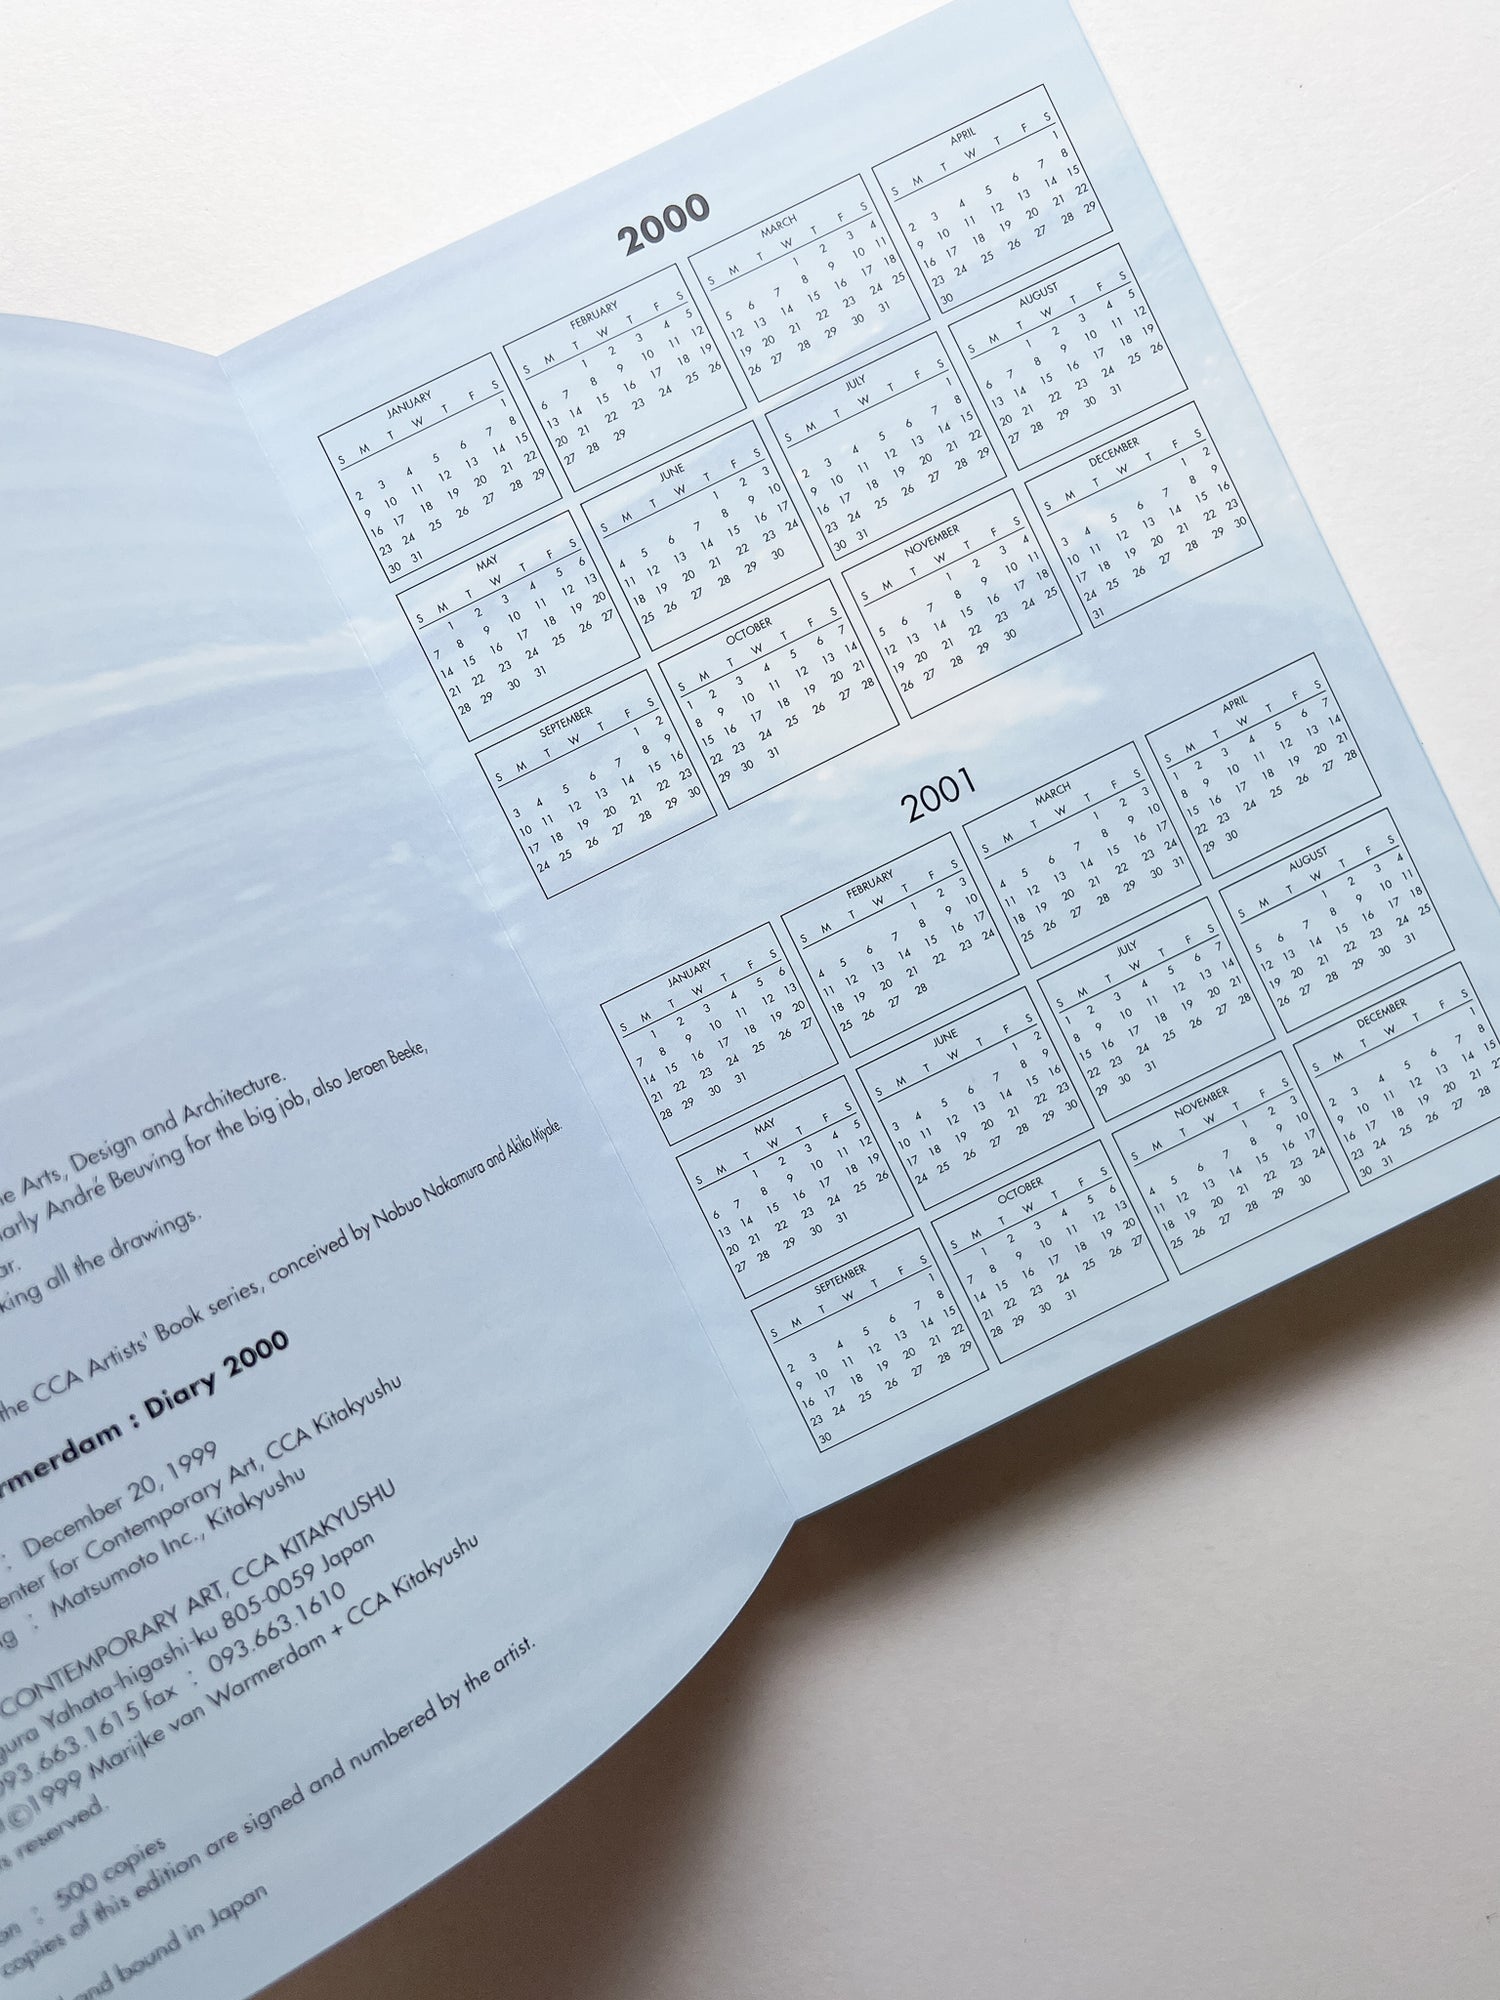 Arts, Design and Architecture.
André Beuving for the big job, also Jeroen Beeke,
all the drawings.
the CCA Artists' Book series, conceived by Nobuo Nakamura and Akiko Miyake.
: Diary 2000
: December 20, 1999
for Contemporary Art, CCA Kitakyushu
: Matsumoto Inc., Kitakyushu
CONTEMPORARY ART, CCA KITAKYUSHU
Yahata-higashi-ku 805-0059 Japan
093.663.1615 fax : 093.663.1610
©1999 Marijke van Warmerdam + CCA Kitakyushu
reserved.
: 500 copies
copies of this edition are signed and numbered by the artist.
and bound in Japan
2000
JANUARY
S M T W T F S
1
2 3 4 5 6 7 8
9 10 11 12 13 14 15
16 17 18 19 20 21 22
23 24 25 26 27 28 29
30 31
FEBRUARY
S M T W T F S
1 2 3 4 5
6 7 8 9 10 11 12
13 14 15 16 17 18 19
20 21 22 23 24 25 26
27 28 29
MARCH
S M T W T F S
1 2 3 4
5 6 7 8 9 10 11
12 13 14 15 16 17 18
19 20 21 22 23 24 25
26 27 28 29 30 31
APRIL
S M T W T F S
1
2 3 4 5 6 7 8
9 10 11 12 13 14 15
16 17 18 19 20 21 22
23 24 25 26 27 28 29
30
MAY
S M T W T F S
1 2 3 4 5 6
7 8 9 10 11 12 13
14 15 16 17 18 19 20
21 22 23 24 25 26 27
28 29 30 31
JUNE
S M T W T F S
1 2 3
4 5 6 7 8 9 10
11 12 13 14 15 16 17
18 19 20 21 22 23 24
25 26 27 28 29 30
JULY
S M T W T F S
1
2 3 4 5 6 7 8
9 10 11 12 13 14 15
16 17 18 19 20 21 22
23 24 25 26 27 28 29
30 31
AUGUST
S M T W T F S
1 2 3 4 5
6 7 8 9 10 11 12
13 14 15 16 17 18 19
20 21 22 23 24 25 26
27 28 29 30 31
SEPTEMBER
S M T W T F S
1 2
3 4 5 6 7 8 9
10 11 12 13 14 15 16
17 18 19 20 21 22 23
24 25 26 27 28 29 30
OCTOBER
S M T W T F S
1 2 3 4 5 6 7
8 9 10 11 12 13 14
15 16 17 18 19 20 21
22 23 24 25 26 27 28
29 30 31
NOVEMBER
S M T W T F S
1 2 3 4
5 6 7 8 9 10 11
12 13 14 15 16 17 18
19 20 21 22 23 24 25
26 27 28 29 30
DECEMBER
S M T W T F S
1 2
3 4 5 6 7 8 9
10 11 12 13 14 15 16
17 18 19 20 21 22 23
24 25 26 27 28 29 30
31
2001
JANUARY
S M T W T F S
1 2 3 4 5 6
7 8 9 10 11 12 13
14 15 16 17 18 19 20
21 22 23 24 25 26 27
28 29 30 31
FEBRUARY
S M T W T F S
1 2 3
4 5 6 7 8 9 10
11 12 13 14 15 16 17
18 19 20 21 22 23 24
25 26 27 28
MARCH
S M T W T F S
1 2 3
4 5 6 7 8 9 10
11 12 13 14 15 16 17
18 19 20 21 22 23 24
25 26 27 28 29 30 31
APRIL
S M T W T F S
1 2 3 4 5 6 7
8 9 10 11 12 13 14
15 16 17 18 19 20 21
22 23 24 25 26 27 28
29 30
MAY
S M T W T F S
1 2 3 4 5
6 7 8 9 10 11 12
13 14 15 16 17 18 19
20 21 22 23 24 25 26
27 28 29 30 31
JUNE
S M T W T F S
1 2
3 4 5 6 7 8 9
10 11 12 13 14 15 16
17 18 19 20 21 22 23
24 25 26 27 28 29 30
JULY
S M T W T F S
1 2 3 4 5 6 7
8 9 10 11 12 13 14
15 16 17 18 19 20 21
22 23 24 25 26 27 28
29 30 31
AUGUST
S M T W T F S
1 2 3 4
5 6 7 8 9 10 11
12 13 14 15 16 17 18
19 20 21 22 23 24 25
26 27 28 29 30 31
SEPTEMBER
S M T W T F S
1
2 3 4 5 6 7 8
9 10 11 12 13 14 15
16 17 18 19 20 21 22
23 24 25 26 27 28 29
30
OCTOBER
S M T W T F S
1 2 3 4 5 6
7 8 9 10 11 12 13
14 15 16 17 18 19 20
21 22 23 24 25 26 27
28 29 30 31
NOVEMBER
S M T W T F S
1 2 3
4 5 6 7 8 9 10
11 12 13 14 15 16 17
18 19 20 21 22 23 24
25 26 27 28 29 30
DECEMBER
S M T W T F S
1
2 3 4 5 6 7 8
9 10 11 12 13 14 15
16 17 18 19 20 21
23 24 25 26 27 28
30 31